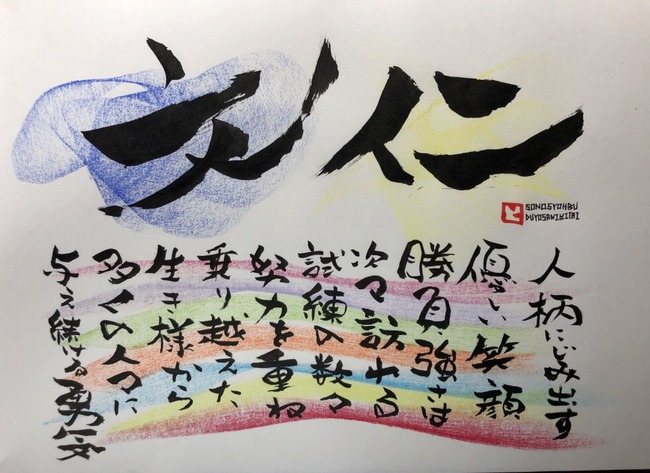 文仁
SONOSYOHBU
人柄にじみ出す
優しい笑顔
勝負強さは
次々訪れる
試練の数々
努力を重ね
乗り越えた
生き様から
多くの人々に
与え続ける勇気